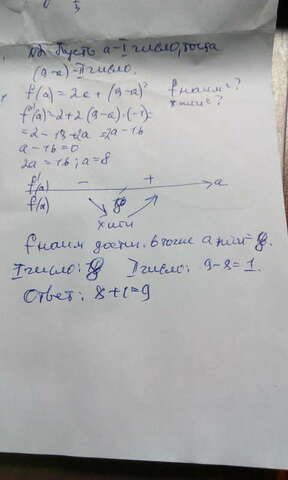 Пусть a - I число, тогда
(9-a) - II число.
f(a) = 2a + (9-a)² fнаим = ?
f'(a) = 2+2(9-a)·(-1) =
= 2 - 18 + 2a = 2a - 16
a - 16 = 0
2a = 16; a = 8
f'(a) - + a
f(a)
8
x min
f наим дости. в точке a min = 8.
I число: 8 II число: 9-8=1.
Ответ: 8+1=9